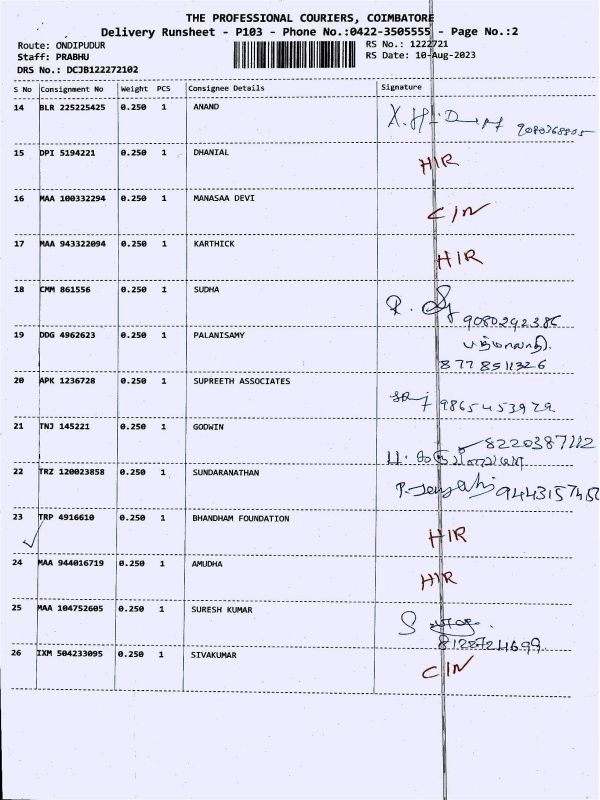 THE PROFESSIONAL COURIERS, COIMBATORE
Delivery Runsheet - P103 - Phone No.:0422-3505555 - Page No.:2
Route: ONDIPUDUR
RS No.: 1222721
Staff: PRABHU
RS Date: 10-Aug-2023
DRS No.: DCJB122272102
S No Consignment No Weight PCS Consignee Details Signature
14 BLR 225225425 0.250 1 ANAND
9080368805
15 DPI 5194221 0.250 1 DHANIAL H/R
16 MAA 100332294 0.250 1 MANASAA DEVI C/N
17 MAA 943322094 0.250 1 KARTHICK H/R
18 CMM 861556 0.250 1 SUDHA
9080292386
19 DDG 4962623 0.250 1 PALANISAMY
8778511326
20 APK 1236728 0.250 1 SUPREETH ASSOCIATES 9865453929
21 TNJ 145221 0.250 1 GODWIN 8220387112
22 TRZ 120023858 0.250 1 SUNDARANATHAN
23 TRP 4916610 0.250 1 BHANDHAM FOUNDATION H/R
24 MAA 944016719 0.250 1 AMUDHA H/R
25 MAA 104752605 0.250 1 SURESH KUMAR
8122724699
26 IXM 504233095 0.250 1 SIVAKUMAR C/N